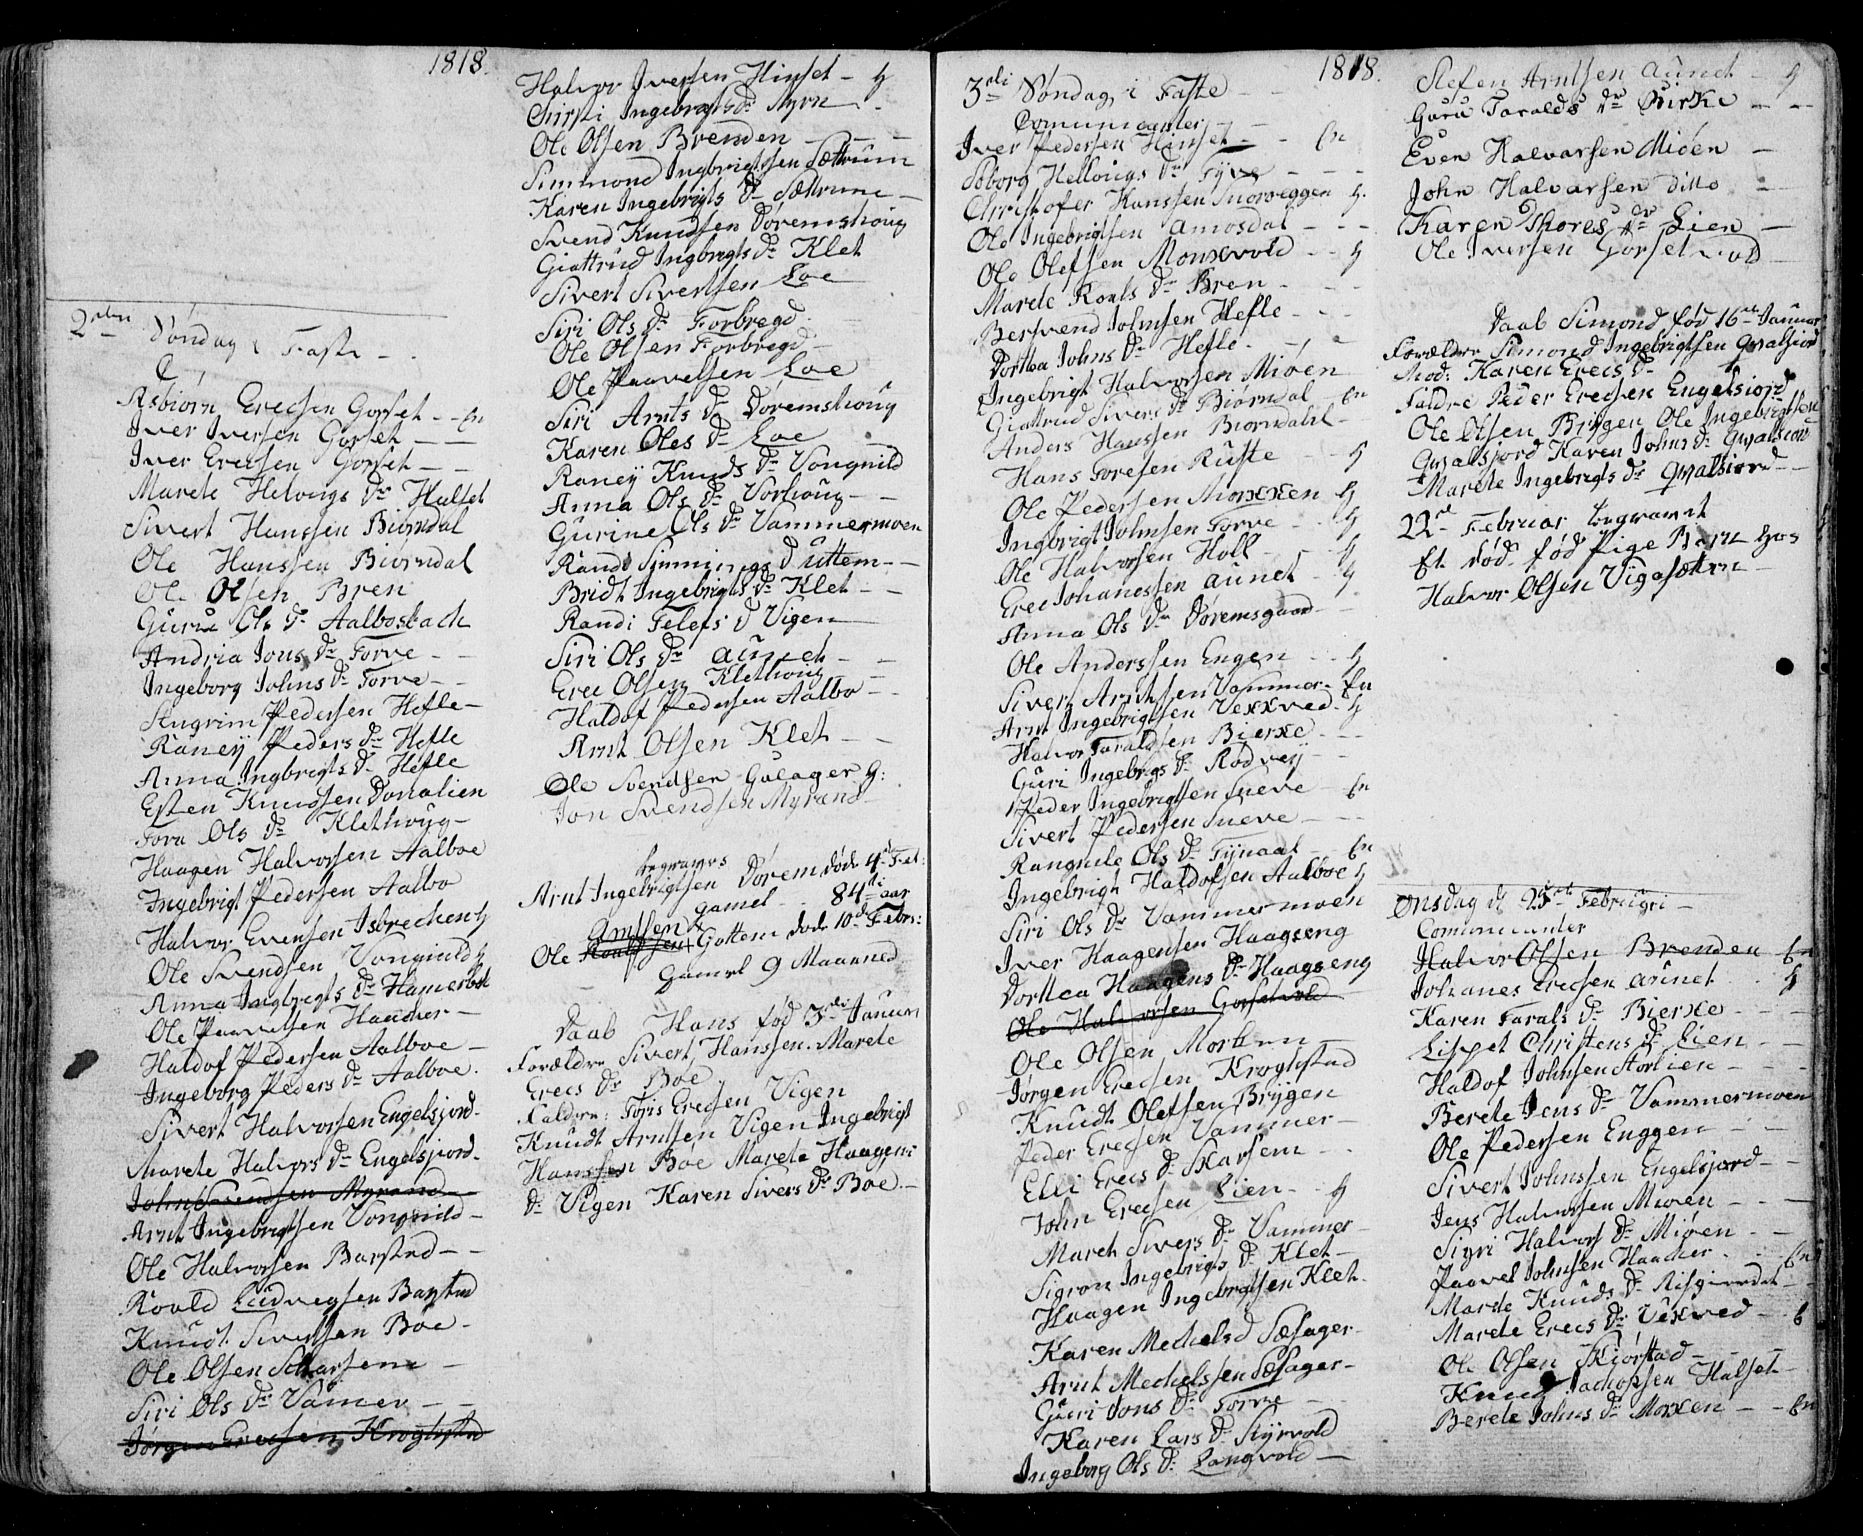 1818.
2den Søndag i Faste
C
Asbiørn Erecsen Gorset - - En
Iver Iversen Gorset - -
Iver Erecsen Gorset - -
Marete Helvigs Dr Halset
Sivert Hanssen Biørndal
Ole Hanssen Biørndal
Ole Olsen Bren
Guru Ols Dr Aalbosbach
Andria Jons Dr Forve - -
Ingeborg Johns Dr Forve - -
Angrim Pedersen Hefle -
Raney Peders Dr Hefle
Anna Ingbrigts Dr Hefle
Esten Knudsen Donalien
Tora Ols Dr Klethoug -
Haagen Halvorsen Aalboe
Ingebrigt Pedersen Aalbo
Halvor Evensen Isbrechen g
Ole Svendsen Vongnild g
Anna Ingbrigts Dr Hamerbek
Ole Paavelsen Haacker -
Haldof Pedersen Aalboe -
Ingeborg Peders Dr Aalboe.
Sivert Halvorsen Engelsjord -
Marete Halvors Dr Engelsjord -
John Svendsen Myrand
Arnt Ingebrigtsen Vongnild -
Ole Halvorsen Barstad - -
Roald Ludvegsen Barstad
Knudt Sivertsen Boe -
Ole Olsen Scharsem -
Siri Ols Dr Vamer - -
Jørgen Erecsen Krogstad
Halvor Iversen Hinset - g
Chirsti Ingebrigts Dr Myrn -
Ole Olsen Brenden - -
Simmond Ingbrigtsen Sættrum
Karen Ingebrigts Dr Sættrum -
Svend Knudsen Doremshoug
Giattrud Ingbrigts Dr Klet
Sivert Sivertsen Loe
Siri Ols Dr Forbregd
Ole Olsen Forbregd
Ole Paavelsen Loe
Siri Arnts Dr Doremshoug
Karen Oles Dr Loe
Raney Knuds Dr Vongnild
Anna Ols Dr Vorhoug - -
Gurine Ols Dr Vammermoen
Randi Simmings DUttem - -
Bridt Ingebrigts Dr Klet - -
Randi Telefs D Vigen
Siri Ols Dr Aunet - -
Erec Olsen Klethoug -
Haldof Pedersen Aalbo -
Arnt Olsen Klet - -
Ole Svendsen Gulager g:
Jon Svendsen Myrand
begraves
Arnt Ingebrigtsen Dorem døde 4de Feb:
gamel - 84ti aar
Arntsen
Ole Gottem døde 10de Febr:
Gamel 9 Maaned
Daab Hans fød 3di Januari
Forældre Sivert Hanssen. Marete
Erecs Dr Boe
Faddre: Foris Erecsen Vigen
Knudt Arntsen Vigen Ingebrigt
Hanssen Boe Marete Haagens
Dr Vigen Karen Sivers Dr Boe -
3di Søndag i Faste 1818.
Comunicanter
Iver Pedersen Hinset - - En
Soborg Hellvigs Dr Tyve - - -
Christofer Hanssen Snorveggen g.
Ole Ingebrigtsen Amosdal - - -
Ole Olefsen Monxvold - - g
Marete Roals Dr Bren - - -
Bersvend Johnsen Hefle - - -
Dortea Johns Dr Hefle - - -
Ingebrigt Halvorsen Mioen
Giattrud Sivers Dr Biørndal - En
Anders Hanssen Biorndahl -
Hans Toresen Ruste - - g
Ole Pedersen Morxxen g
Ingbrigt Johnsen Forve - - g
Ole Halvorsen Holl - - g
Erec Johanessen Aunet - g
Anna Ols Dr Doremsgaard -
Ole Anderssen Engen - - g
Sivert Arntssen Vammer - En
Arnt Ingebrigtsen Vexxved - g
Halvor Taraldsen Bierxe - - -
Guri Ingebrigs Dr Rodvey - -
Peder Ingebrigtsen Sneve - En
Sivert Pedersen Sneve - - -
Rangnile Ols Dr Tynaal - - En
Ingebrigt Haldofsen Aalboe g
Siri Ols Dr Vammermoen
Iver Haagensen Haagseng
Dortea Haagens Dr Haagseng
Ole Halvorsen Gorsetvold
Ole Olsen Morken
Jørgen Erecsen Krogstad
Knudt Olefsen Brygen
Peder Erecsen Vammer -
Elli Erecs Dr Skarsem - -
John Erecsen Lien - - g
Maret Sivers Dr Vammer -
Sigron Ingebrigts Dr Klet -
Haagen Ingebrigtsen Klet -
Karen Mechels D Sæsager -
Arnt Mechelssen Sæsager -
Guri Jons Dr Forve - -
Karen Lars Dr Styrvold
Ingeborg Ols Dr Langvold -
Stefen Arntsen Aunet - g
Guru Taralds Dr Birke - -
Even Halvarsen Mioen -
John Halvarsen Ditto -
Karen Thores Dr Lien -
Ole Iversen Gorsetvold
Daab Simond fød 16de Januar
Forældre Simond Ingebrigtsen Qvalsiord
Mod: Karen Erecs Dr
Faddre Peder Erecsen Engelsiord
Ole Olsen Brygen Ole Ingebrigtsen
Qvalsjord Karen Johns Dr Qvalsiord
Marete Ingebrigts Dr Qvalsiord -
22de Februar begravet
Et død fød Pige Barn hos
Halvor Olsen Vigasætrn -
Onsdag d 25de Februari -
Comunicanter
Halvor Olsen Brenden En
Johanes Erecsen Aunet - g
Karen Tarals Dr Bierxe - - -
Lisbet Christens Dr Lien - - -
Haldof Johnsen Storlien - - -
Berete Jens Dr Vammermoen
Ole Pedersen Enggen - -
Sivert Johnssen Engelsjord - -
Jens Halvorsen Mioen - - -
Sigri Halvors Dr Mioen - -
Paavel Johnsen Haacker - - En
Marete Knuds Dr Risgiærdet - -
Marete Erecs Dr Vexved - - g
Ole Olsen Skiørstad - - -
Knud Jachopsen Halset -
Berete Johns Dr Morxen - - En